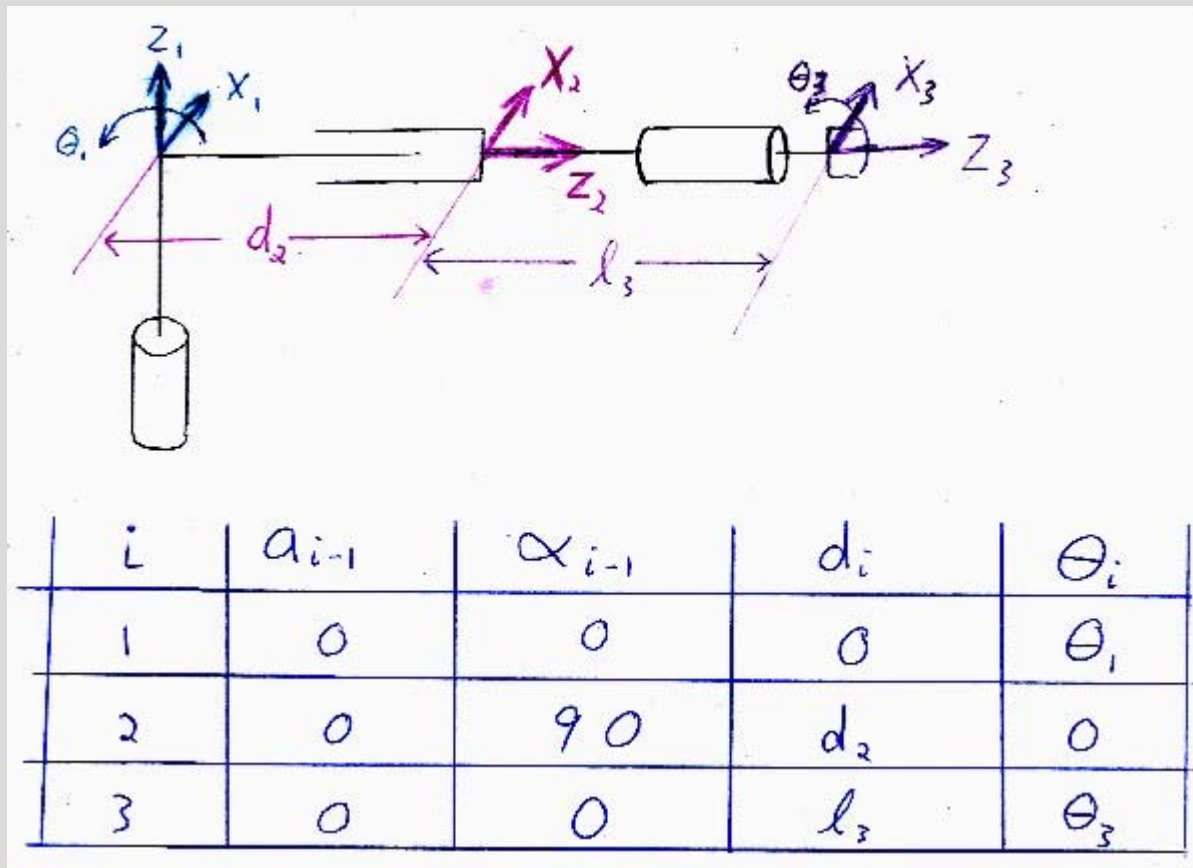 Z₁
X₁
θ₁
X₂
Z₂
θ₃
X₃
Z₃
d₂
l₃
i aᵢ₋₁ αᵢ₋₁ dᵢ θᵢ
1 0 0 0 θ₁
2 0 90 d₂ 0
3 0 0 l₃ θ₃